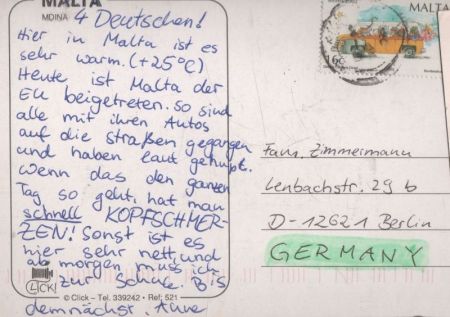 MALTA
MDINA
4 Deutschen!
Hier in Malta ist es
sehr warm. (+25°C)
Heute ist Malta der
EU beigetreten. So sind
alle mit ihren Autos
auf die straßen gegangen
und haben laut gehupt.
Wenn das den ganzen
Tag so geht, hat man
schnell KOPFSCHMER-
ZEN! Sonst ist es
hier sehr nett und
ab morgen muss ich
zur Schule. Bis
demnächst, Anne
CLICK
© Click - Tel. 339242 - Ref: 521
MALTA
16c
Fam. Zimmermann
Lenbachstr. 29 b
D-12621 Berlin
GERMANY